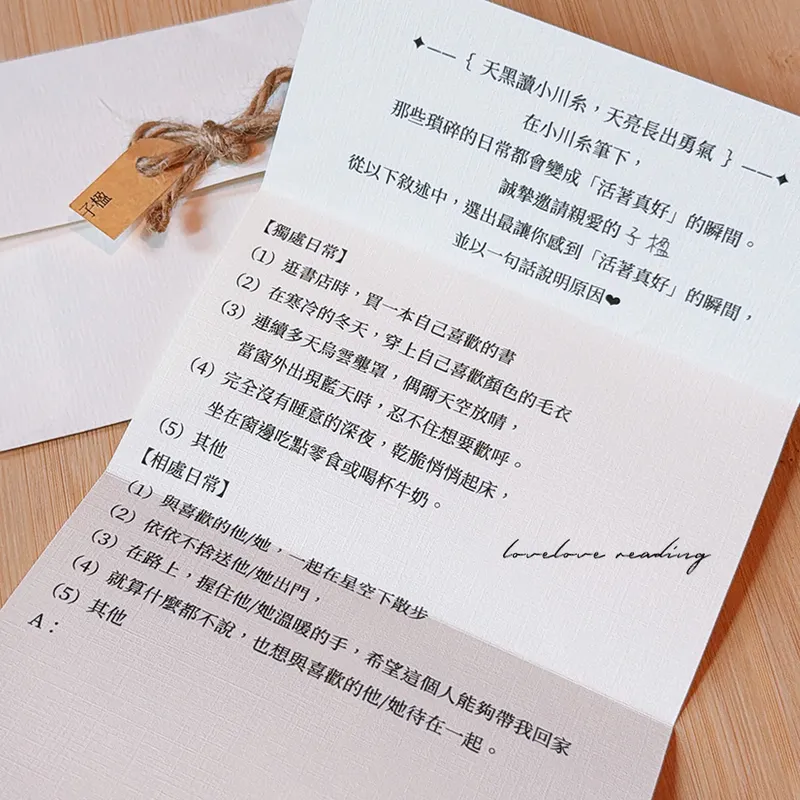 子楹
✦—— { 天黑讀小川糸，天亮長出勇氣 } ——✦
在小川糸筆下，
那些瑣碎的日常都會變成「活著真好」的瞬間。
誠摯邀請親愛的 子楹
從以下敘述中，選出最讓你感到「活著真好」的瞬間，
並以一句話說明原因❤
【獨處日常】
(1) 逛書店時，買一本自己喜歡的書
(2) 在寒冷的冬天，穿上自己喜歡顏色的毛衣
(3) 連續多天烏雲壟罩，偶爾天空放晴，
當窗外出現藍天時，忍不住想要歡呼。
(4) 完全沒有睡意的深夜，乾脆悄悄起床，
坐在窗邊吃點零食或喝杯牛奶。
(5) 其他
【相處日常】
(1) 與喜歡的他/她，一起在星空下散步
(2) 依依不捨送他/她出門，
(3) 在路上，握住他/她溫暖的手，希望這個人能夠帶我回家
(4) 就算什麼都不說，也想與喜歡的他/她待在一起。
(5) 其他
A：
lovelove reading